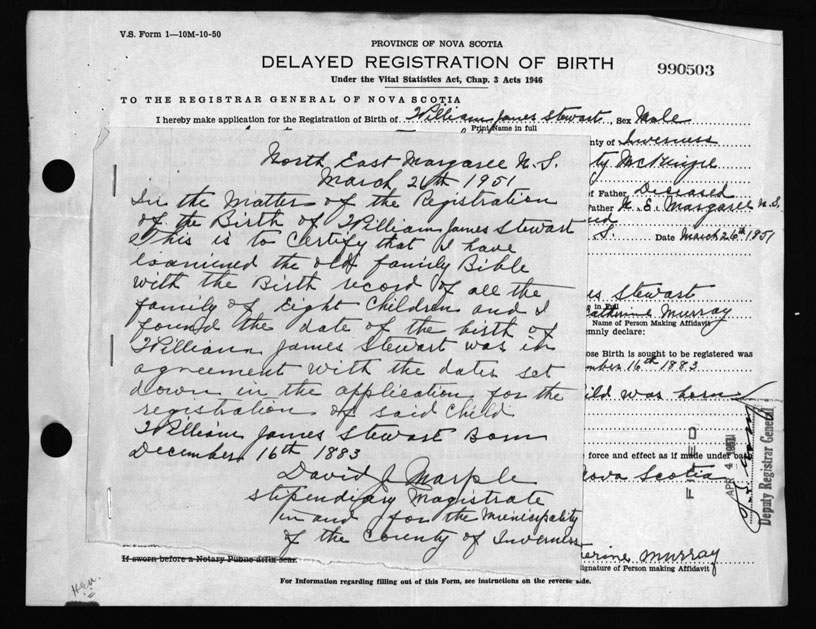 V.S. Form 1—10M-10-50
PROVINCE OF NOVA SCOTIA
DELAYED REGISTRATION OF BIRTH
990503
Under the Vital Statistics Act, Chap. 3 Acts 1946
TO THE REGISTRAR GENERAL OF NOVA SCOTIA
I hereby make application for the Registration of Birth of William James Stewart, Sex Male
Print Name in full
nty of Inverness
ty McKenzie
of Father, Deceased
Father N. E. Margaree N.S.
S. Date March 26th 1951
North East Margaree N.S.
March 26th 1951
In the Matter of the Registration
of the Birth of William James Stewart
This is to Certify that I have
examined the old family Bible
with the Birth record of all the
family of Eight Children and I
found the date of the birth of
William James Stewart was in
agreement with the dates set
down in the application for the
registration of said Child
William James Stewart Born
December 16th 1883
David J Marple
Stipendiary Magistrate
in and for the Municipality
of the County of Inverness
es Stewart
e in Full
Catherine Murray
Name of Person Making Affidavit
emnly declare:
ose Birth is sought to be registered was
mber 16th 1883
ild was born
force and effect as if made under oath
Nova Scotia
FILED
APR 4 1951
Deputy Registrar General
herine Murray
ignature of Person making Affidavit
If sworn before a Notary Public affix seal.
For Information regarding filling out of this Form, see instructions on the reverse side.